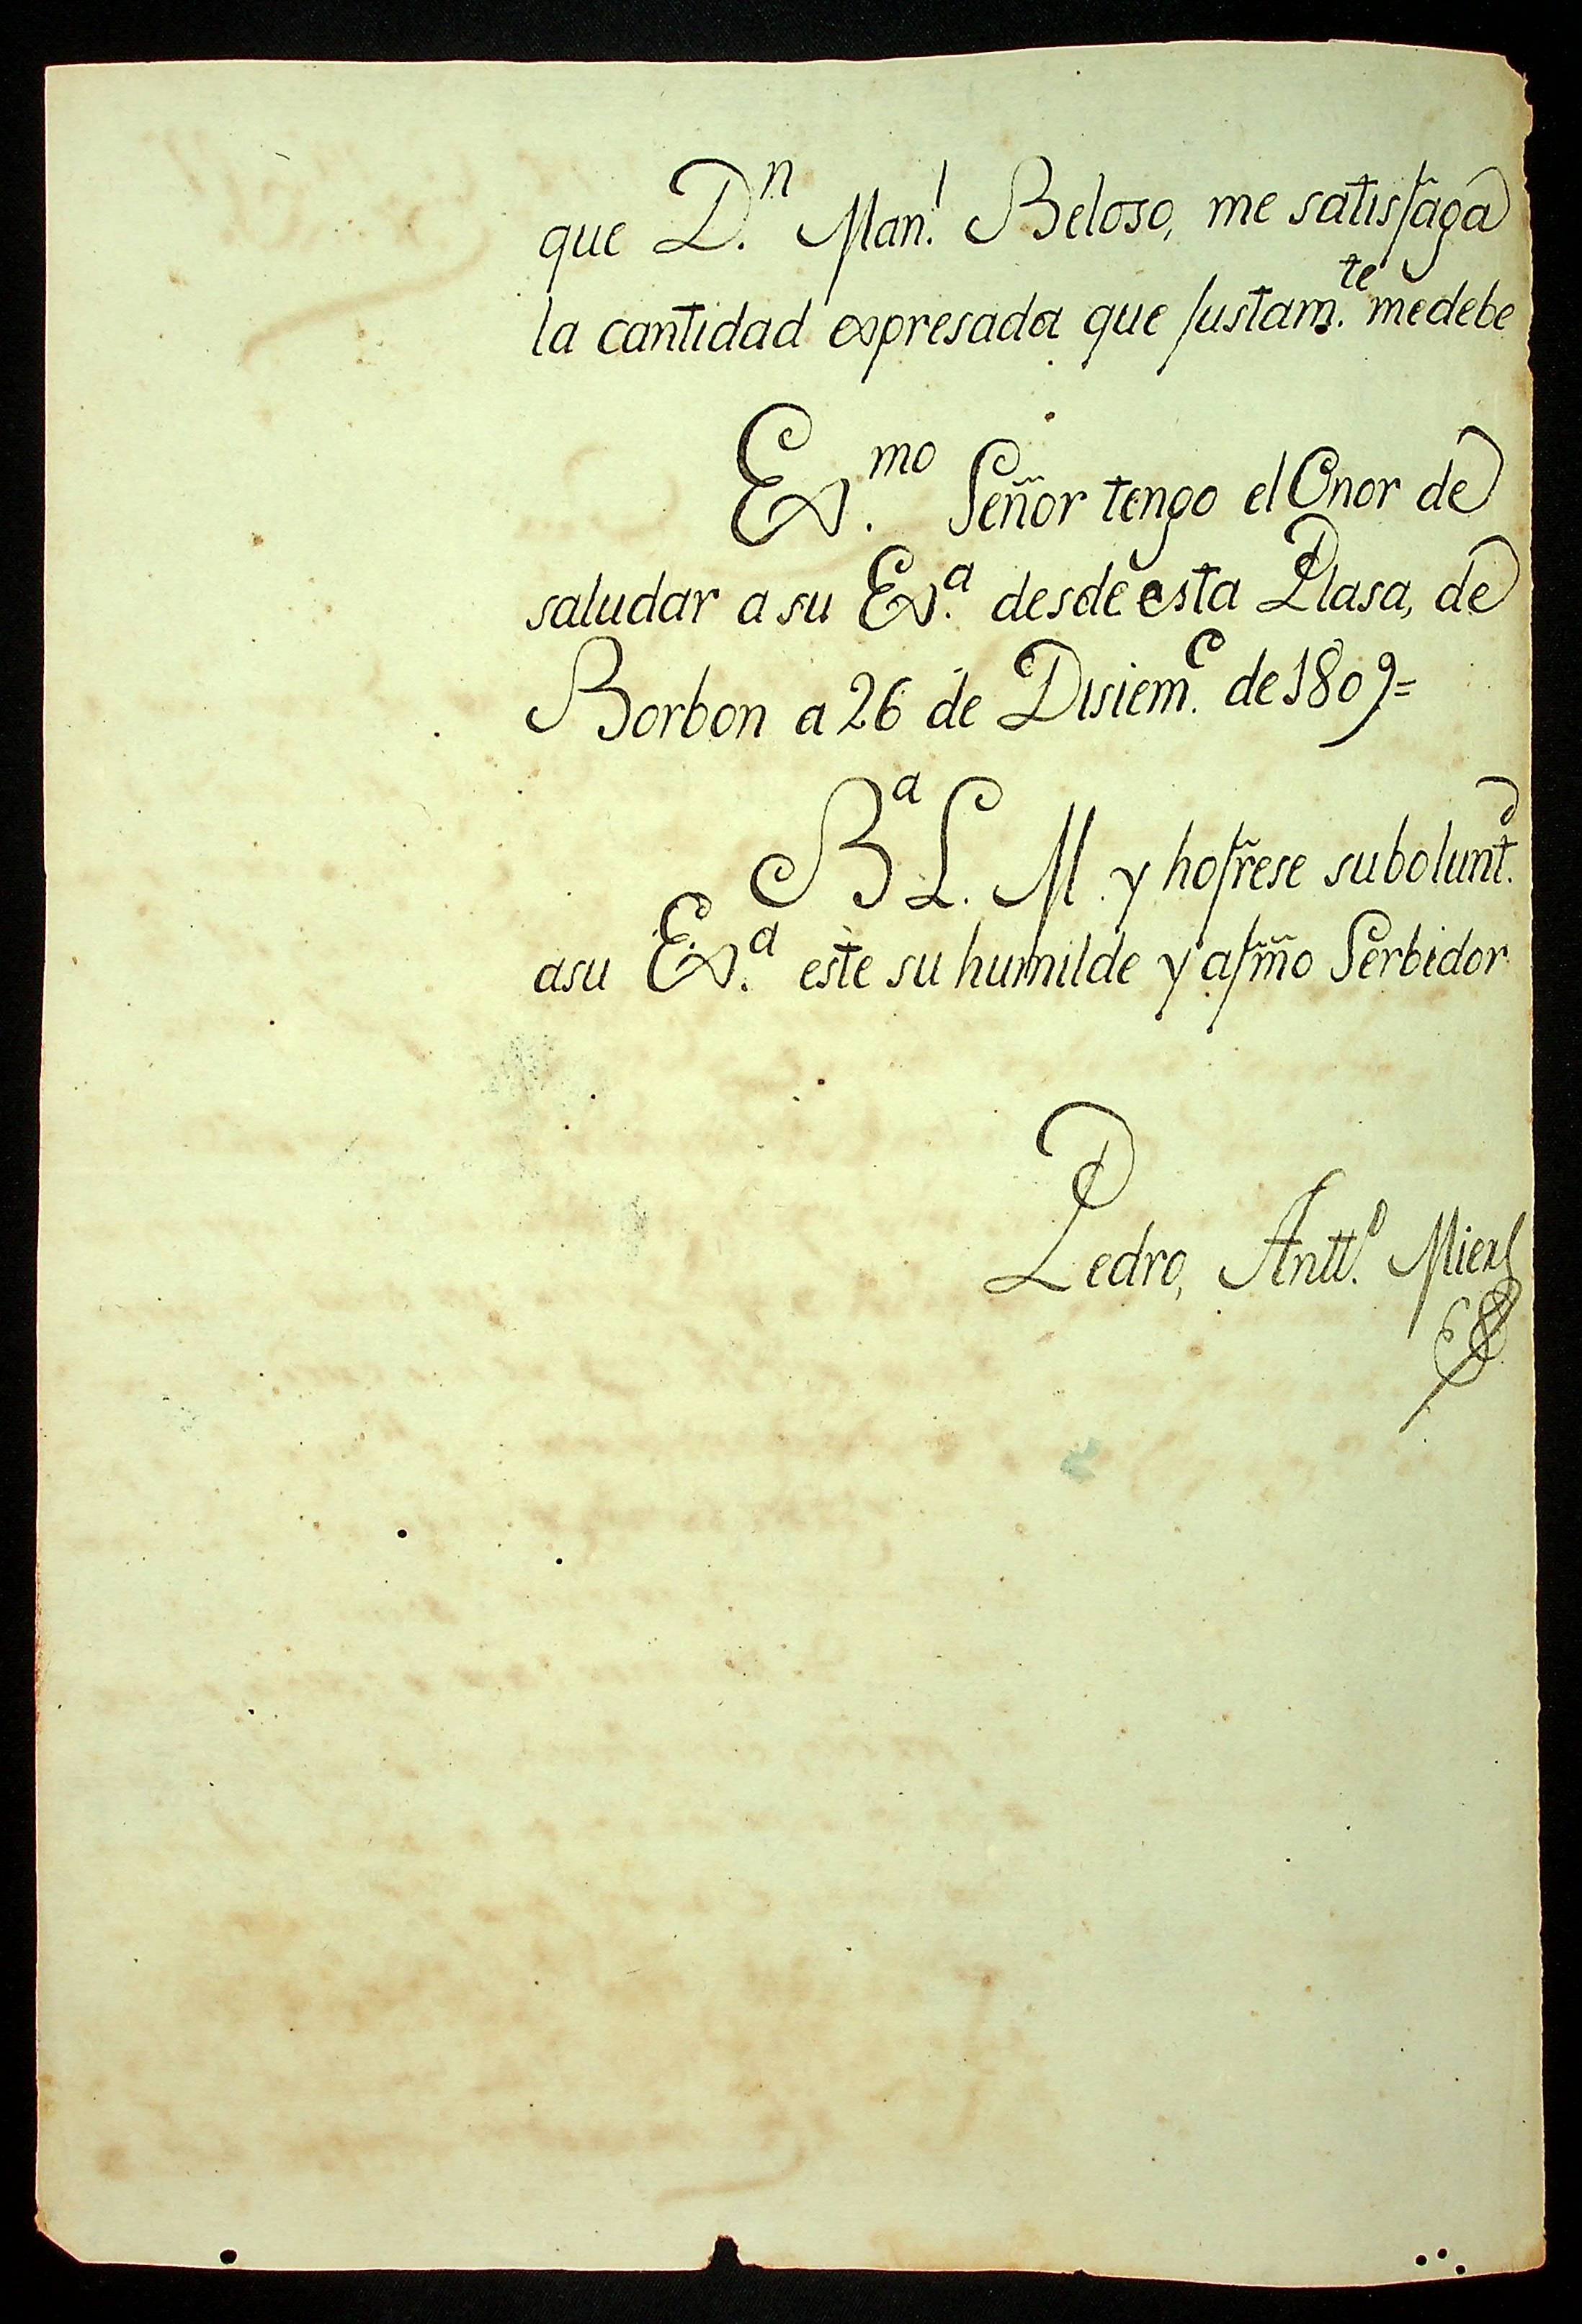 que D.n Man.l Beloso, me satisfaga
la cantidad expresada que Justam.te medebe
Ex.mo Señor tengo el Onor de
saludar a su Ex.a desde esta Plasa, de
Borbon a 26 de Disiem.e de 1809=
Ba L. M. y hofrese subolunt.d
asu Ex.a este su humilde y afmo Serbidor
Pedro, Antt.o Mier